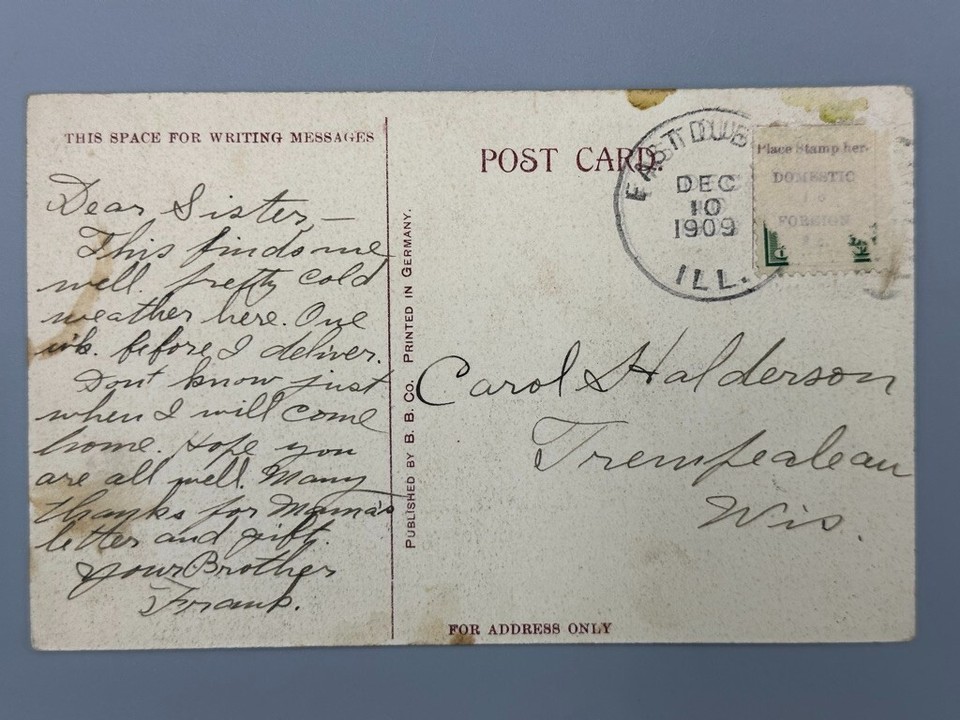 THIS SPACE FOR WRITING MESSAGES
Dear Sister—
This finds me
well. pretty cold
weather here. One
wk. before I deliver.
Dont know just
when I will come
home. Hope you
are all well. Many
thanks for Mama's
letter and gift.
Your Brother
Frank.
PUBLISHED BY B. B. CO. PRINTED IN GERMANY.
POST CARD.
EAST DUBU
DEC
10
1909
ILL.
Place Stamp here
DOMESTIC
FOREIGN
Carol Halderson
Trempealeau
Wis.
FOR ADDRESS ONLY